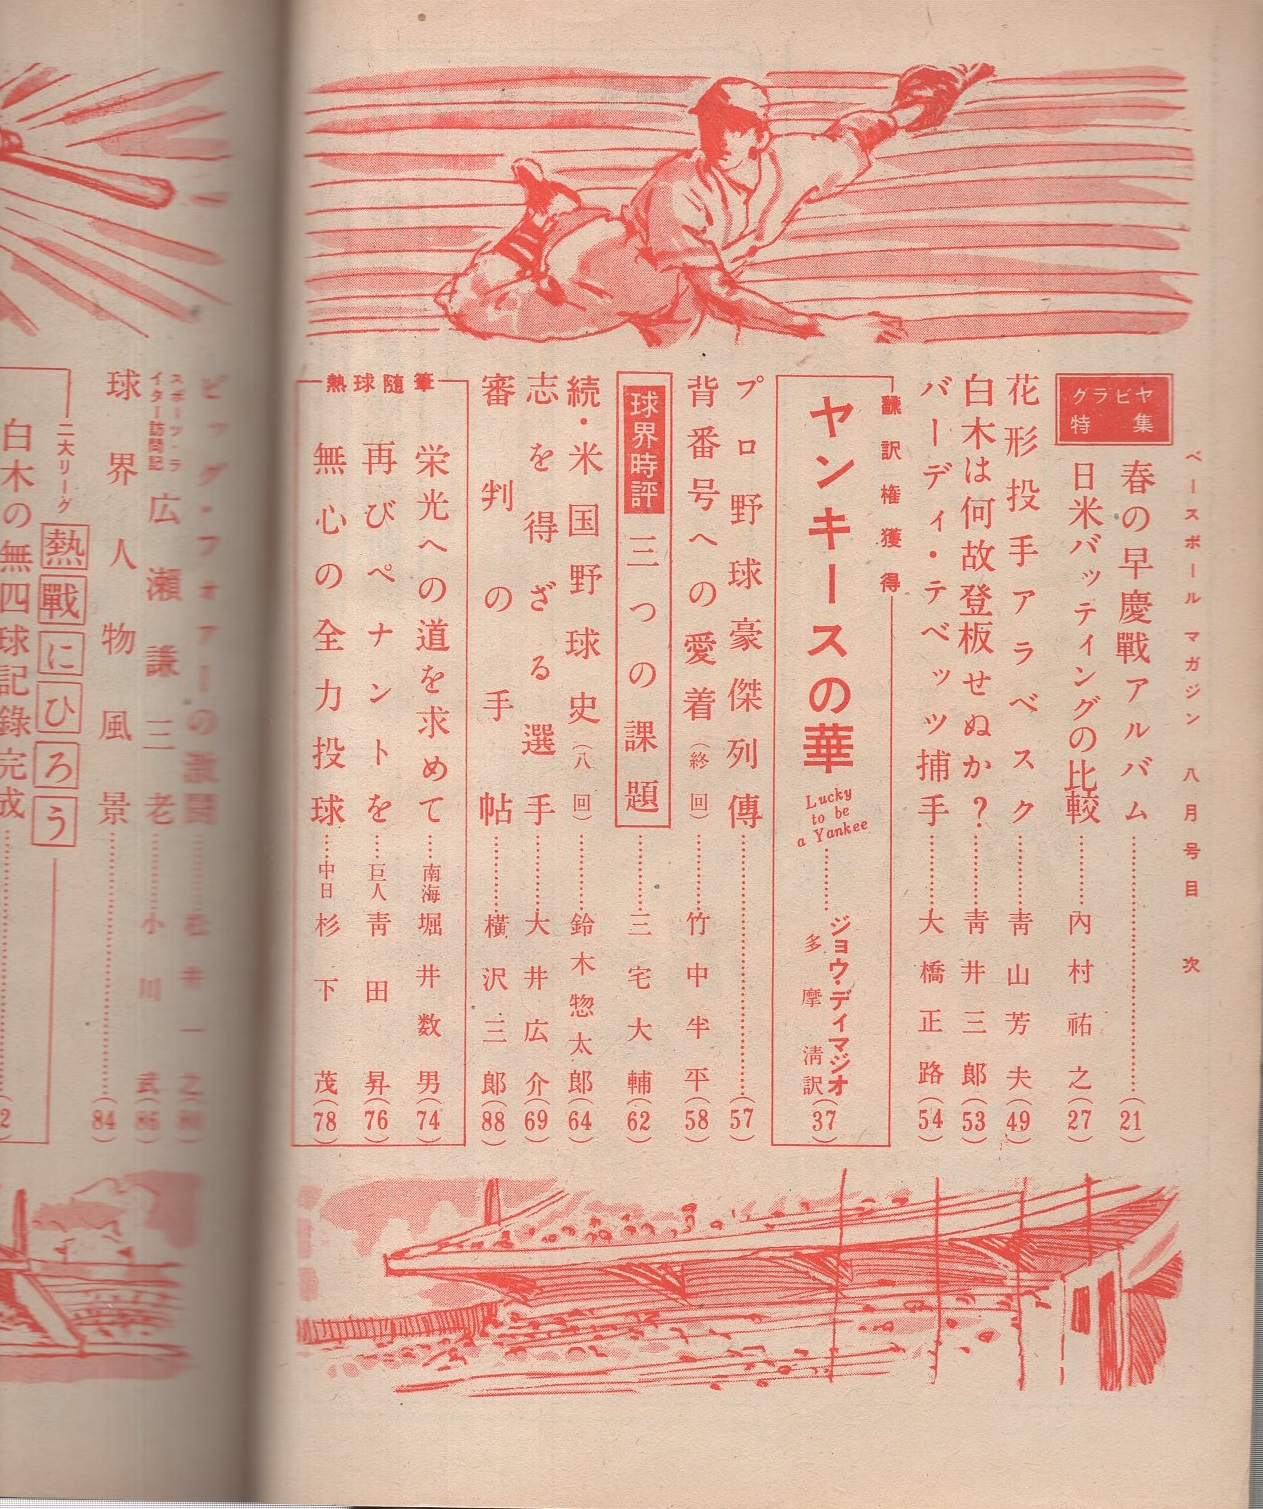 ベースボールマガジン 八月号目次
グラビヤ
特集
春の早慶戰アルバム…………(21)
日米バッティングの比較………內村祐之(27)
花形投手アラベスク………靑山芳夫(49)
白木は何故登板せぬか？………靑井三郎(53)
バーディ・テベッツ捕手………大橋正路(54)
飜訳権獲得
ヤンキースの華
Lucky
to be
a Yankee
………ジョウ・デイマジオ
多摩淸訳
(37)
プロ野球豪傑列傳…………(57)
背番号への愛着(終回)………竹中半平(58)
球界時評 三つの課題………三宅大輔(62)
続・米国野球史(八回)………鈴木惣太郎(64)
志を得ざる選手………大井広介(69)
審判の手帖………橫沢三郎(88)
熱球随筆
栄光への道を求めて……南海 堀井数男(74)
再びペナントを……巨人 靑田昇(76)
無心の全力投球……中日 杉下茂(78)
ビッグ・フォアーの激闘………松井一之
スポーツ・ラ
イター訪問記
広瀬謙三老………小川武(86)
球界人物風景…………(84)
二大リーグ
熱戰にひろう
白木の無四球記録完成